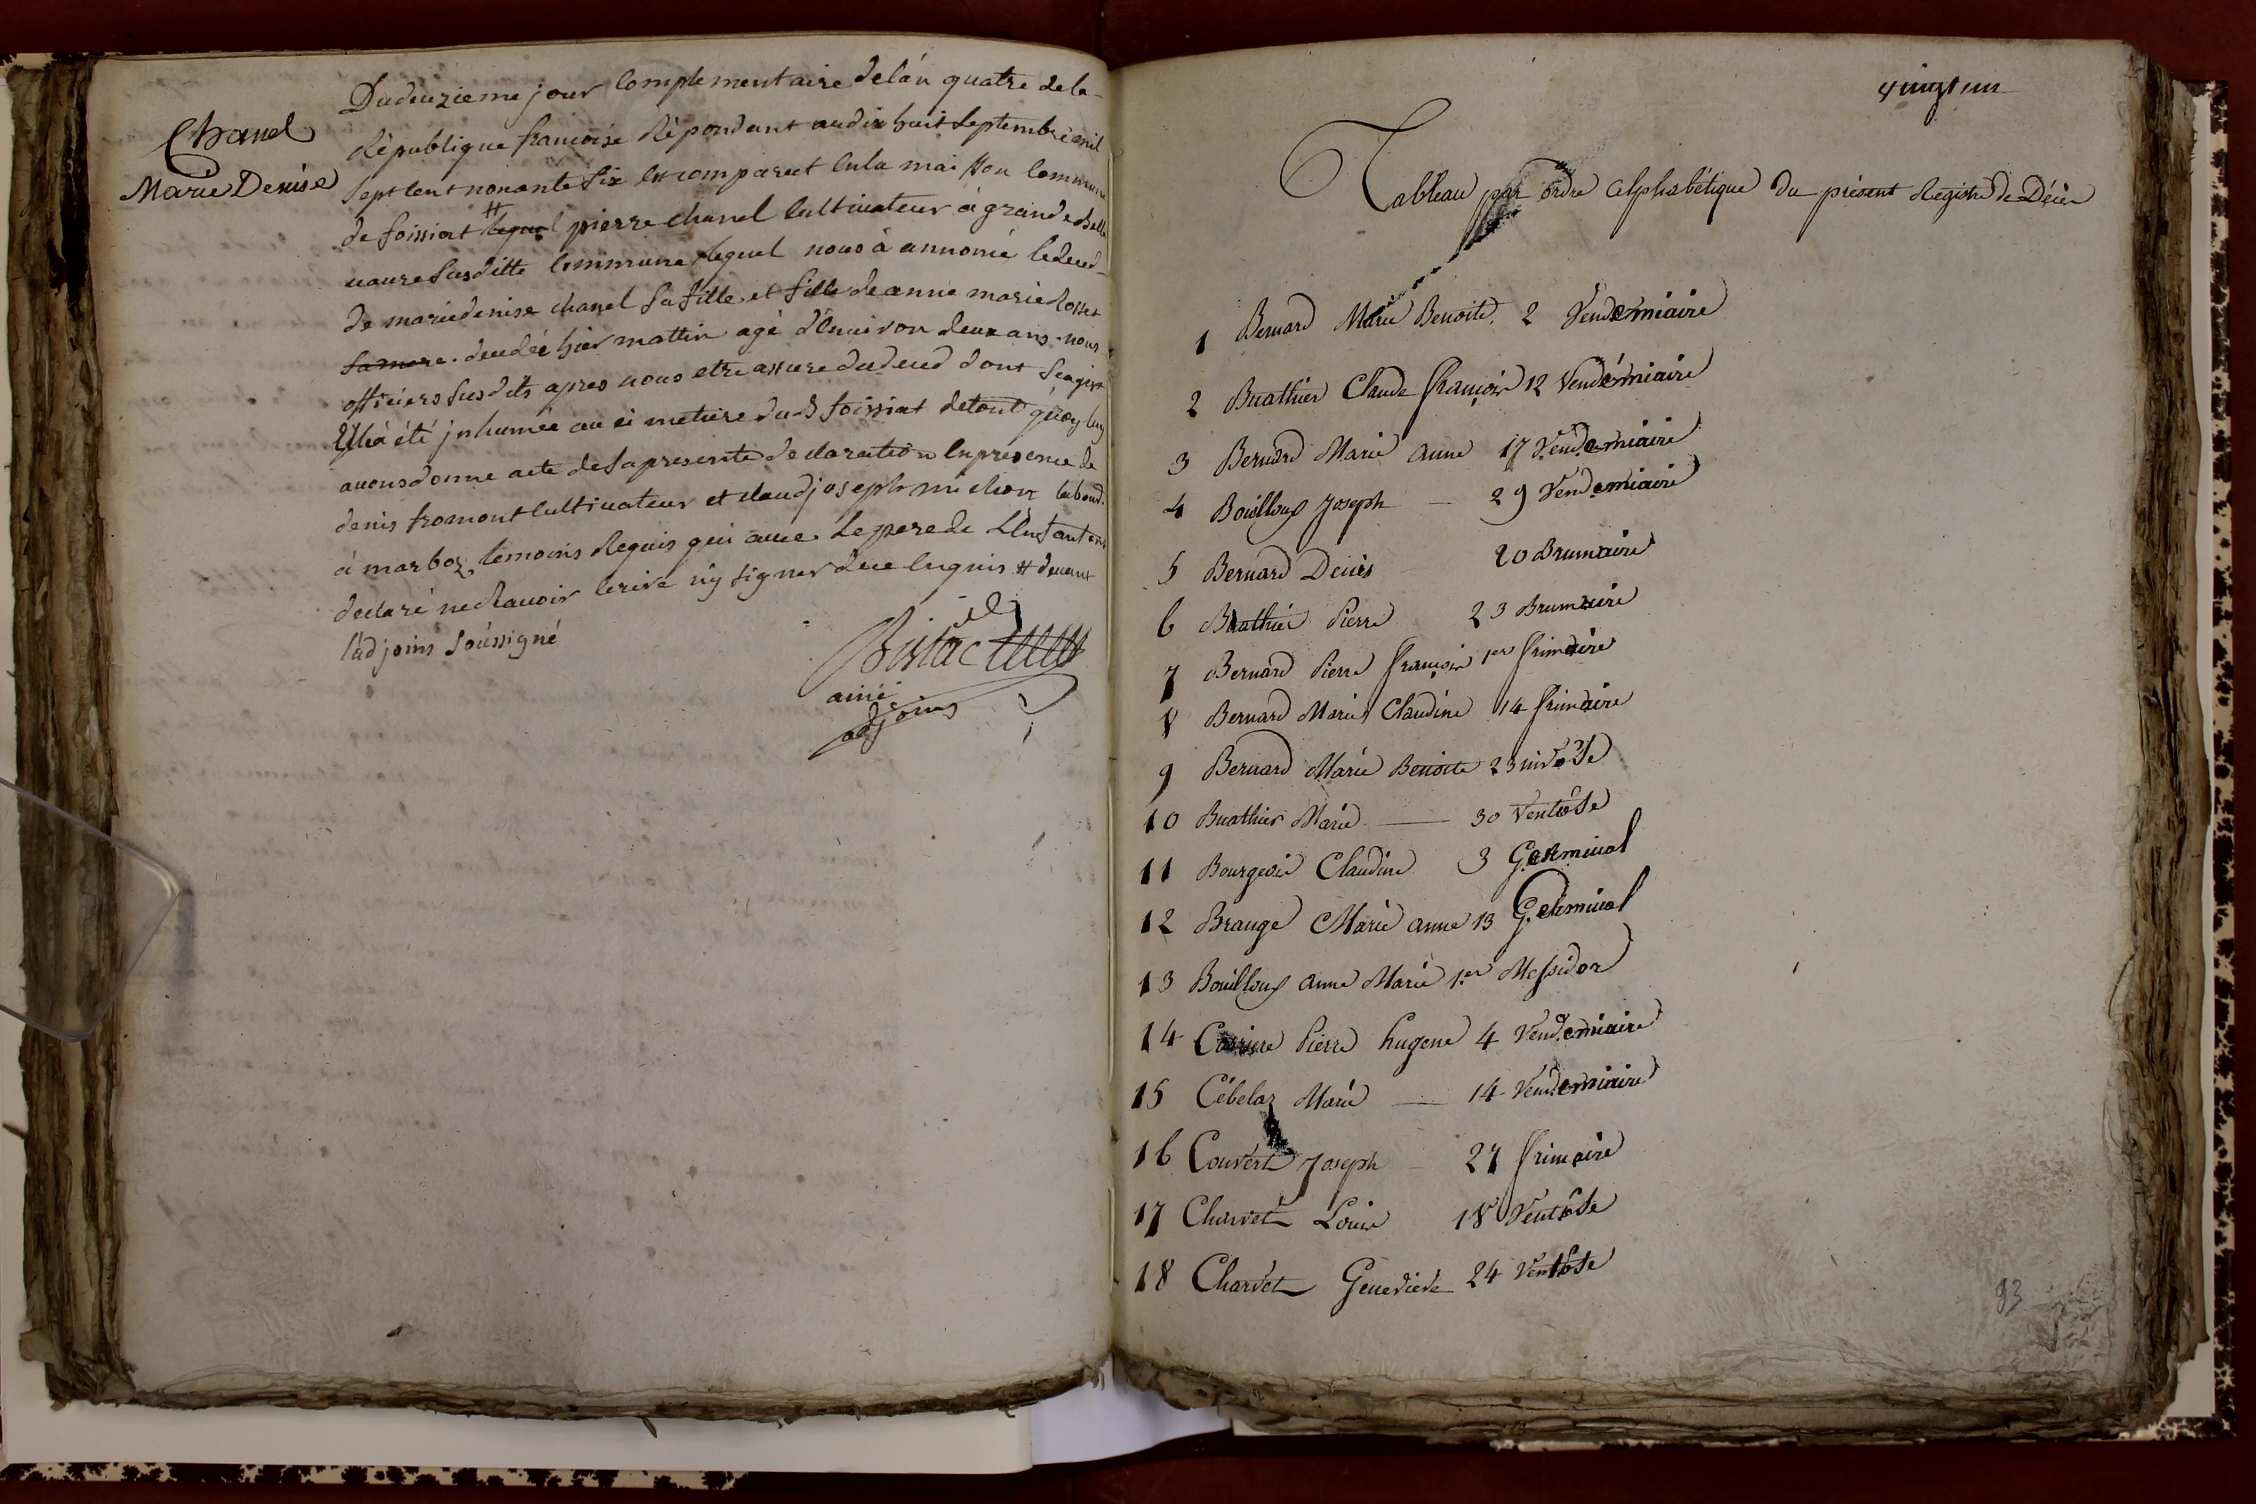 Chanel
Marie Denise
Du deuzieme jour Complementaire de lán quatre de la
République francoise Répondant au dix huit Septembre mil
Sept cent nonante Six Est comparut en la maison Commune
de foissiat lequel pierre chanel Cultivateur à grande
vavre Susditte Commune lequel nous à annoncé le deced
de marie denise chanel Sa fille et fille de anne marie
Sa mere . decedée hier mattin agé d'Environ deux ans . nous
officiers Susdits apres nous etre assuré du deced dont S'agist
Elle à été jnhumée au cimetiere dud foissiat de tout quoy luy
avons donne acte de Sa presente declaration En presence de
denis fromont Cultivateur et claud joseph michon
à marboz, temoins Requis qui avec Le pere de L'Enfant ont
declaré ne Scavoir Ecrire ny Signer de ce Enquis # devant
l'adjoins Soussigné
ainé
adjoins
vingt un
Tableau par ordre alphabétique du présent Registre de Décès
1 Bernard Marie Benoite, 2 Vendemiaire
2 Buathier Claude françois 12 Vendémiaire
3 Bernard Marie anne 17 Vendemiaire
4 Bouilloux Joseph — 29 Vendemiaire
5 Bernard Denis 20 Brumaire
6 Buathier Pierre 23 Brumaire
7 Bernard Pierre françois 1er frimaire
8 Bernard Marie Claudine 14 frimaire
9 Bernard Marie Benoite 23 nivôse
10 Buathier Marie — 30 Ventôse
11 Bourgeois Claudine 3 Germinal
12 Brange Marie anne 13 Germinal
13 Bouilloux anne Marie 1.er Messidor
14 Pierre hugene 4 Vendemiaire
15 Cébelaz Marie — 14 Vendemiaire
16 Couvert Joseph — 27 frimaire
17 Charvet Louis 18 Ventôse
18 Charvet Genevieve 24 Ventôse
93